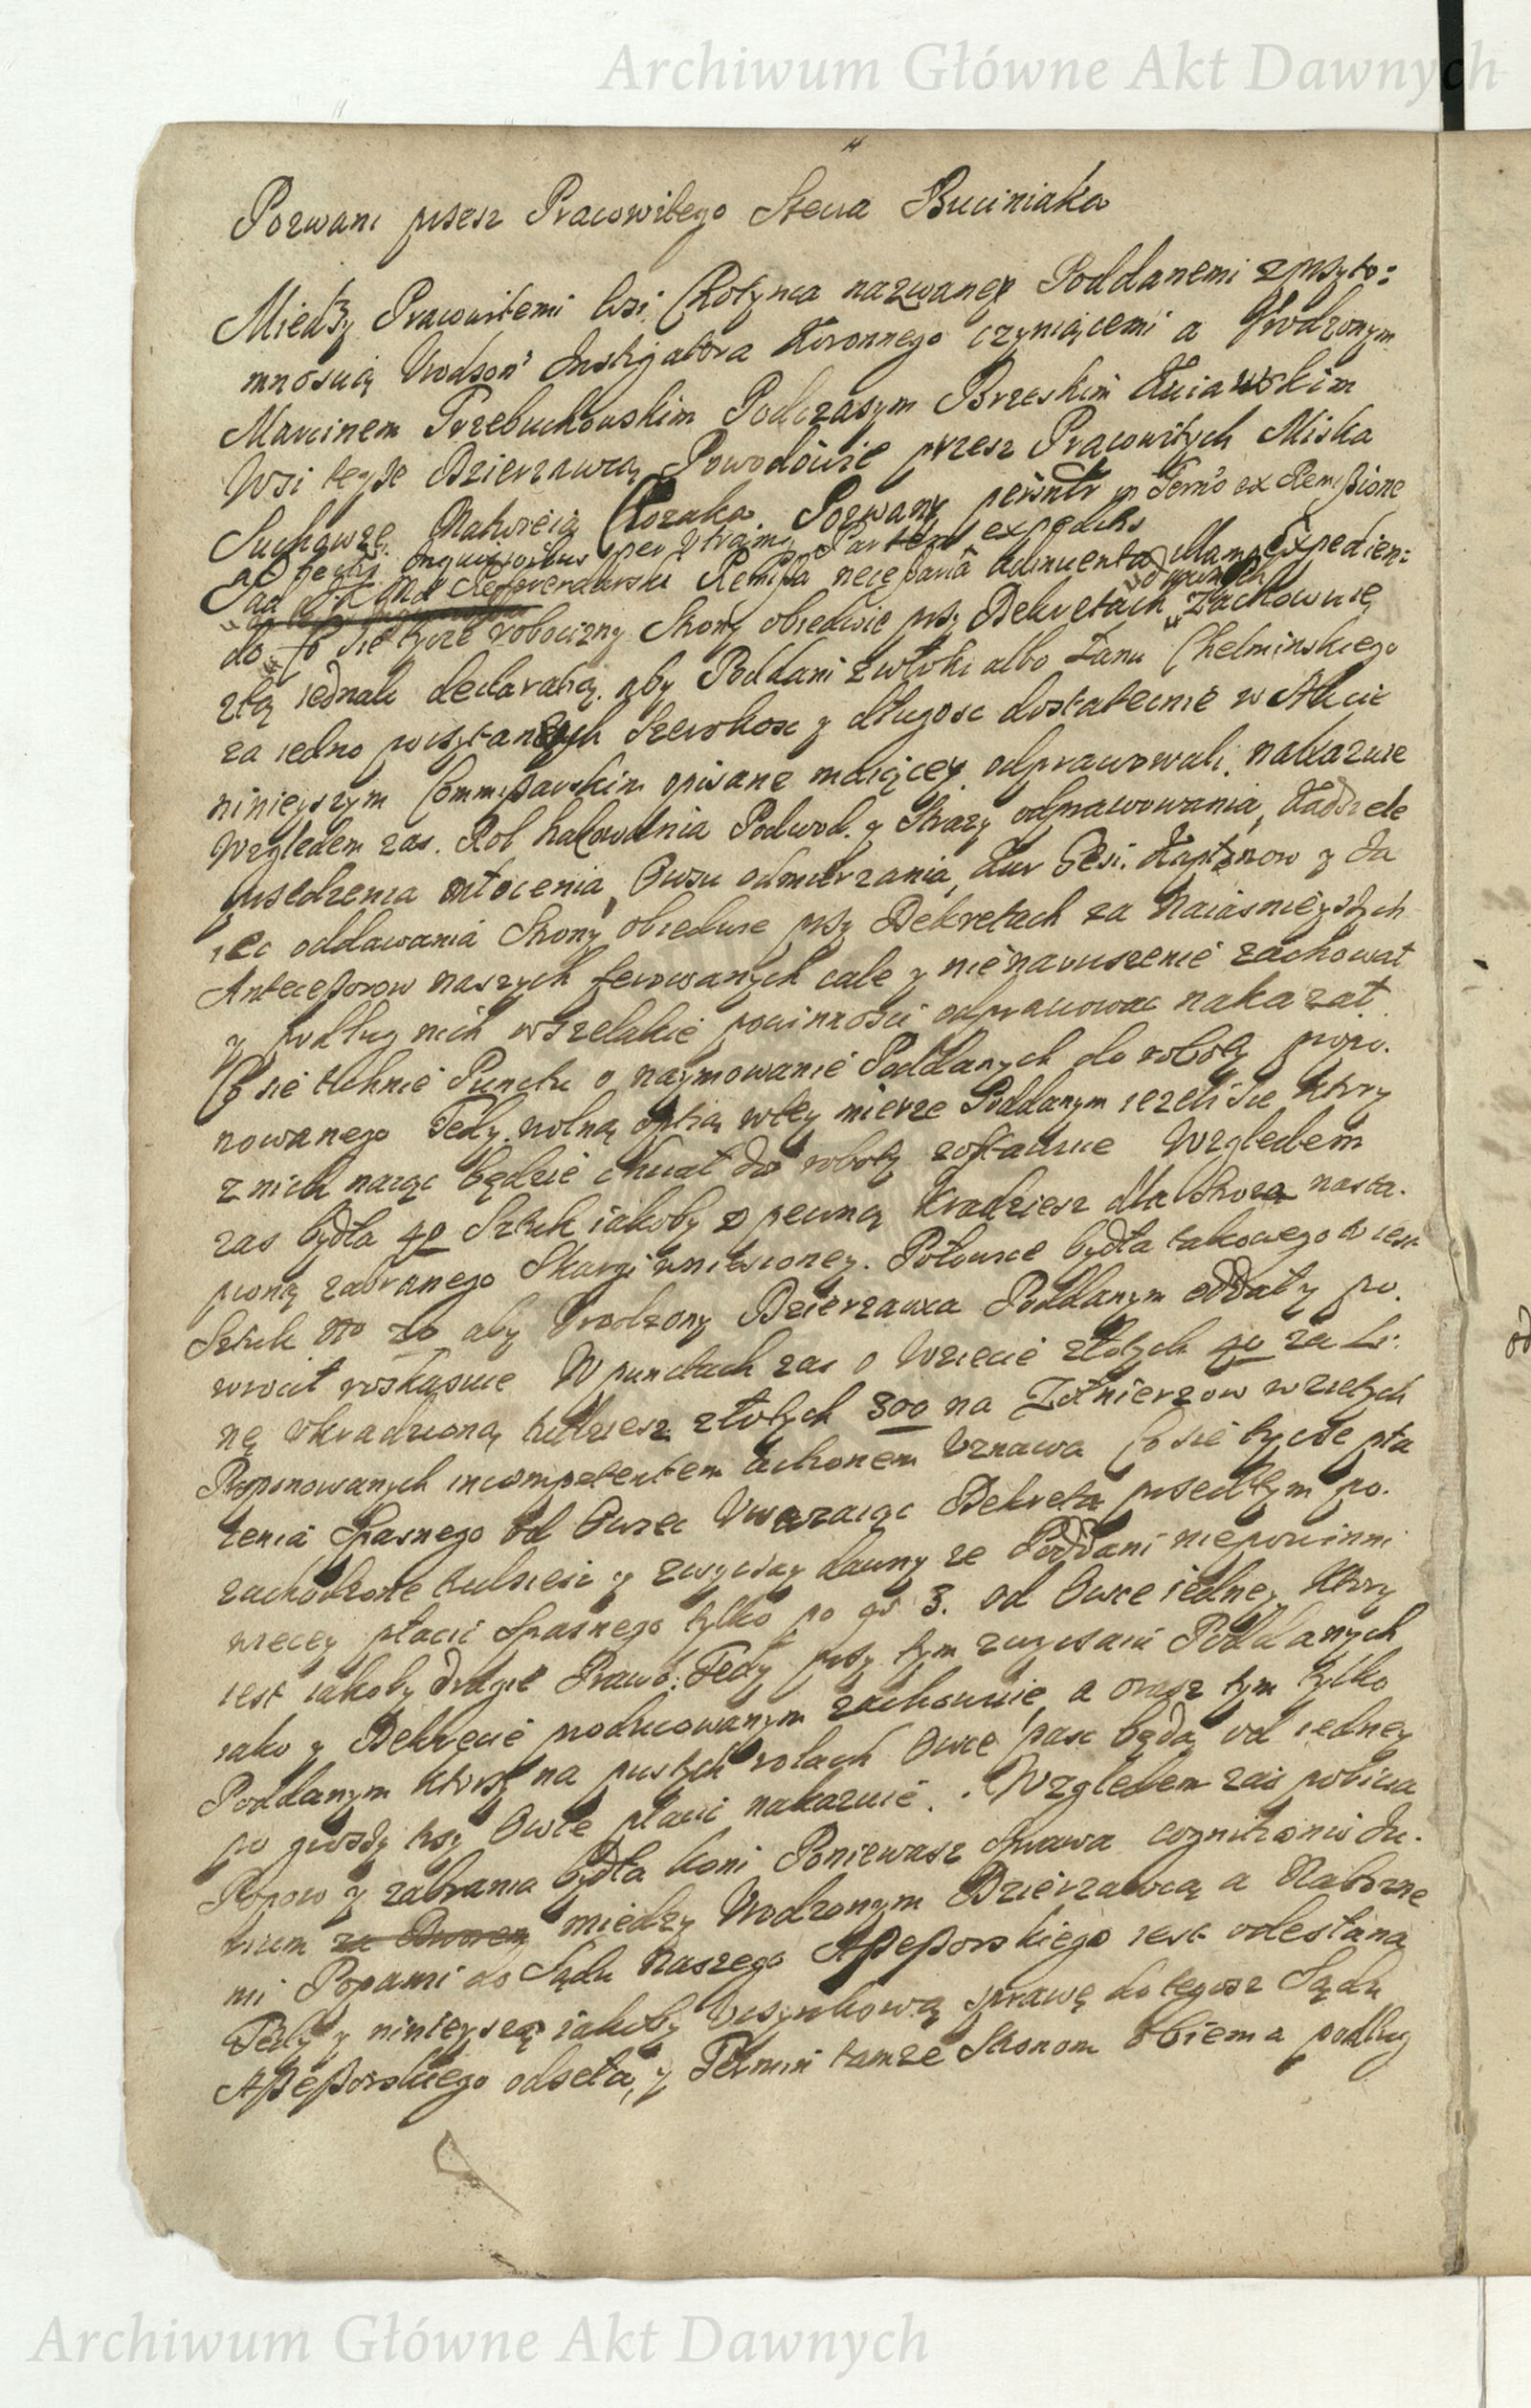 Archiwum Główne Akt Dawnych
Pozwani przesz Pracowitego Steca Buciniaka
Miedzy Pracowitemi Wsi Chotynca nazwaney Poddanemi z przyto:
mnoscią Urodzon Instigatora Koronnego czyniącemi a Urodzonym
Marcinem Przebuchowskim Podczaszym Brzeskim Kuiawskim
Wsi teyże Dzierzawcą Powodowie przesz Pracowitych Miska
Suchowze, Matweia Kozaka Pozwany
Inquisitoribus per Utramq Partem expeditis
do Co sie tycze robocizny Strony obiedwie przy Dekretach Zachowuie
z tą iednak declaratią, aby Poddani z włoki albo Łanu Chelminskiego
za iedno poczytanych Szerokosc y długosc dostatecznie w Akcie
ninieyszym Commissarskim opisane maiącey odprawowali, nakazuie
Względem zas Rol Podwod y Strazy odprawowania, Kądziele
przedzenia młocenia, Owsu odmierzania, Kur Gęsi Kapłonow y Ja
iec oddawania Strony obiedwie przy Dekretach za Naiasnieyszych
Antecessorow naszych ferowanych cale y nienaruszenie zachował
y podług nich wszelakie powinnosci odprawować nakazał
Co sie tchnie Punctu o naymowanie Poddanych do roboty propo.
nowanego Tedy wolną optią w tey mierze Poddanym iezeli sie ktory
z nich naiąc będzie chciał do roboty zostawuie Względem
zas bydła 40 Sztuk iakoby o pewną Kradziesz dla Dwora nastą.
pioną zabranego Skargi wniesioney. Połowice bydła takowego to iest
Sztuk No 20 aby Urodzony Dzierzawca Poddanym oddał y po.
wrocił roskazuie W punctach zas o Wziecie złotych 40 za Li:
nę ukradzioną tudziesz złotych 300 na Zołnierzow wziętych
Proponowanych incompetentem Actionem Uznawa Co sie tycze pła
cenia Spasnego od Owiec Uwazaiąc Dekreta przedtym po.
zachodzone tudziesz y zwyczay dawny ze Poddani niepowinni
wiecey płacic Spasnego tylko po gr 3. od Owce iedney, ktory
iest iakoby drugie Prawo: Tedy przy tym zwyczaiu Poddanych
iako y Dekrecie producowanym zachowuie, a oraz tym tylko
Poddanym ktorzy na pustych rolach Owce pasc będą od iedney
po groszy trzy Owce płacic nakazuie. Względem zas pobicia
Popow y zabrania bydła koni Poniewasz Sprawa cognitionis Ju.
rium za Dworem miedzy Urodzonym Dzierzawcą a Nabozne
mi Popami do Sądu Naszego Assessorskiego iest odesłana
Tedy y ninieyszą iakoby Uczynkową sprawę do tegosz Sądu
Assessorskiego odseła, y Termin tamze Stronom obiema podług
Archiwum Główne Akt Dawnych